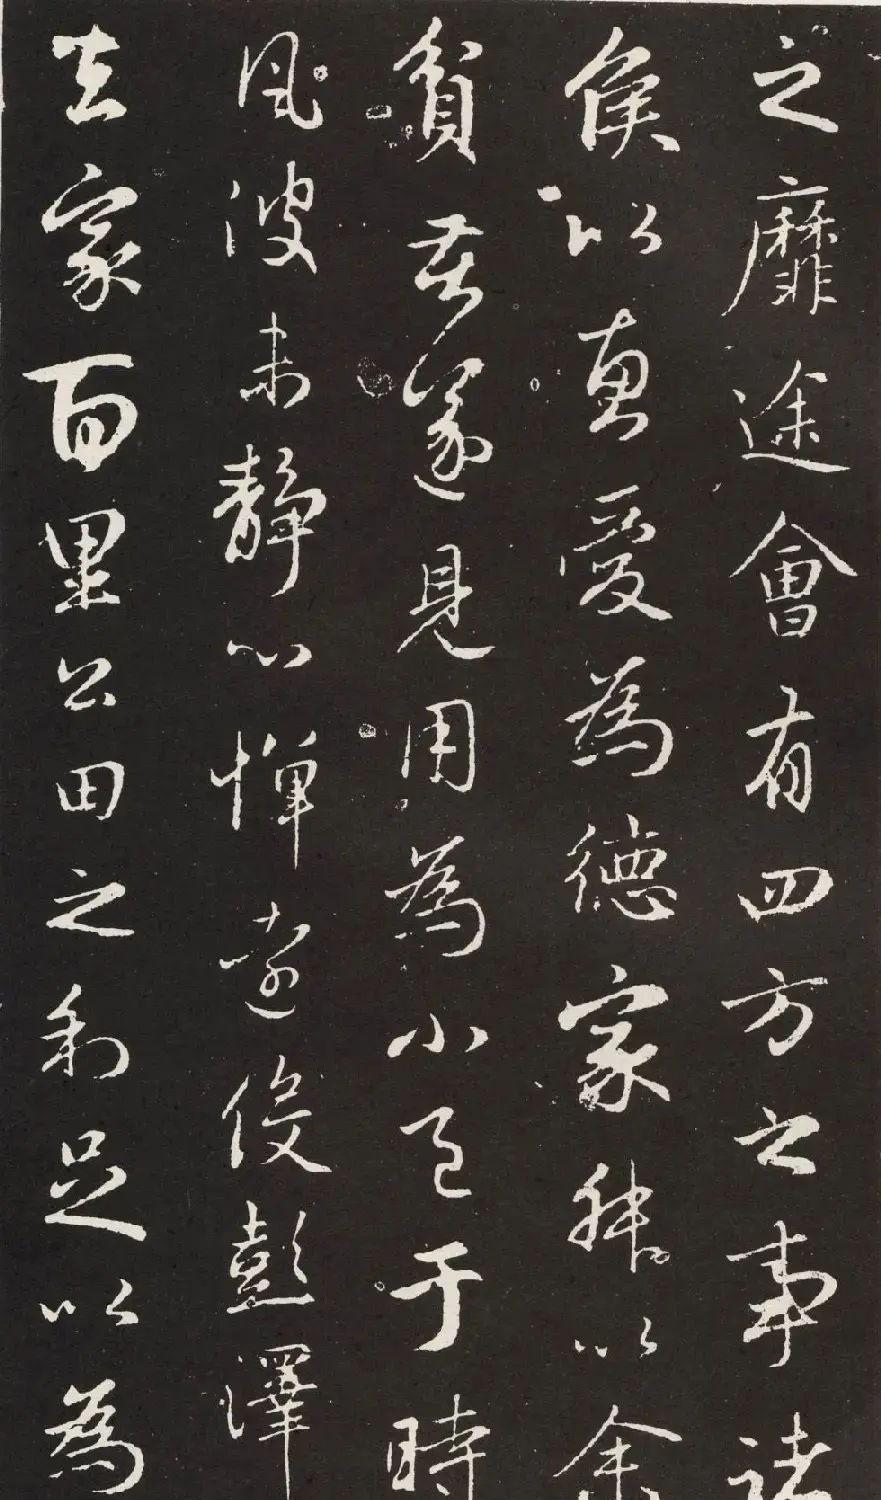 之靡途會有四方之事諸
侯以惠愛為德家叔以余
貧苦遂見用為小邑于時
風波未靜心憚遠役彭澤
去家百里公田之利足以為